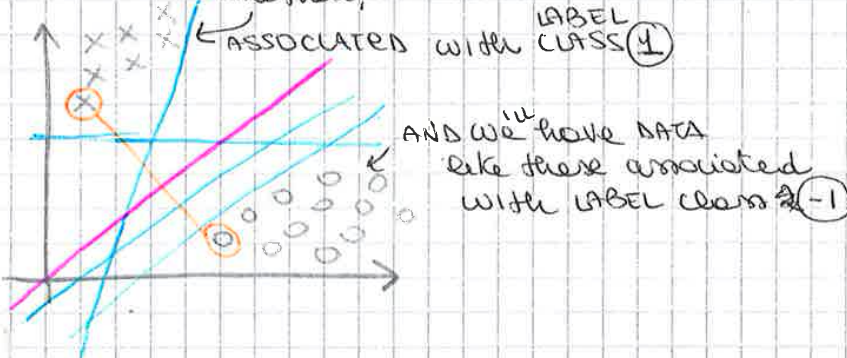 LABEL
ASSOCIATED with CLASS 1
AND we'll have DATA
like these associated
with LABEL class -1